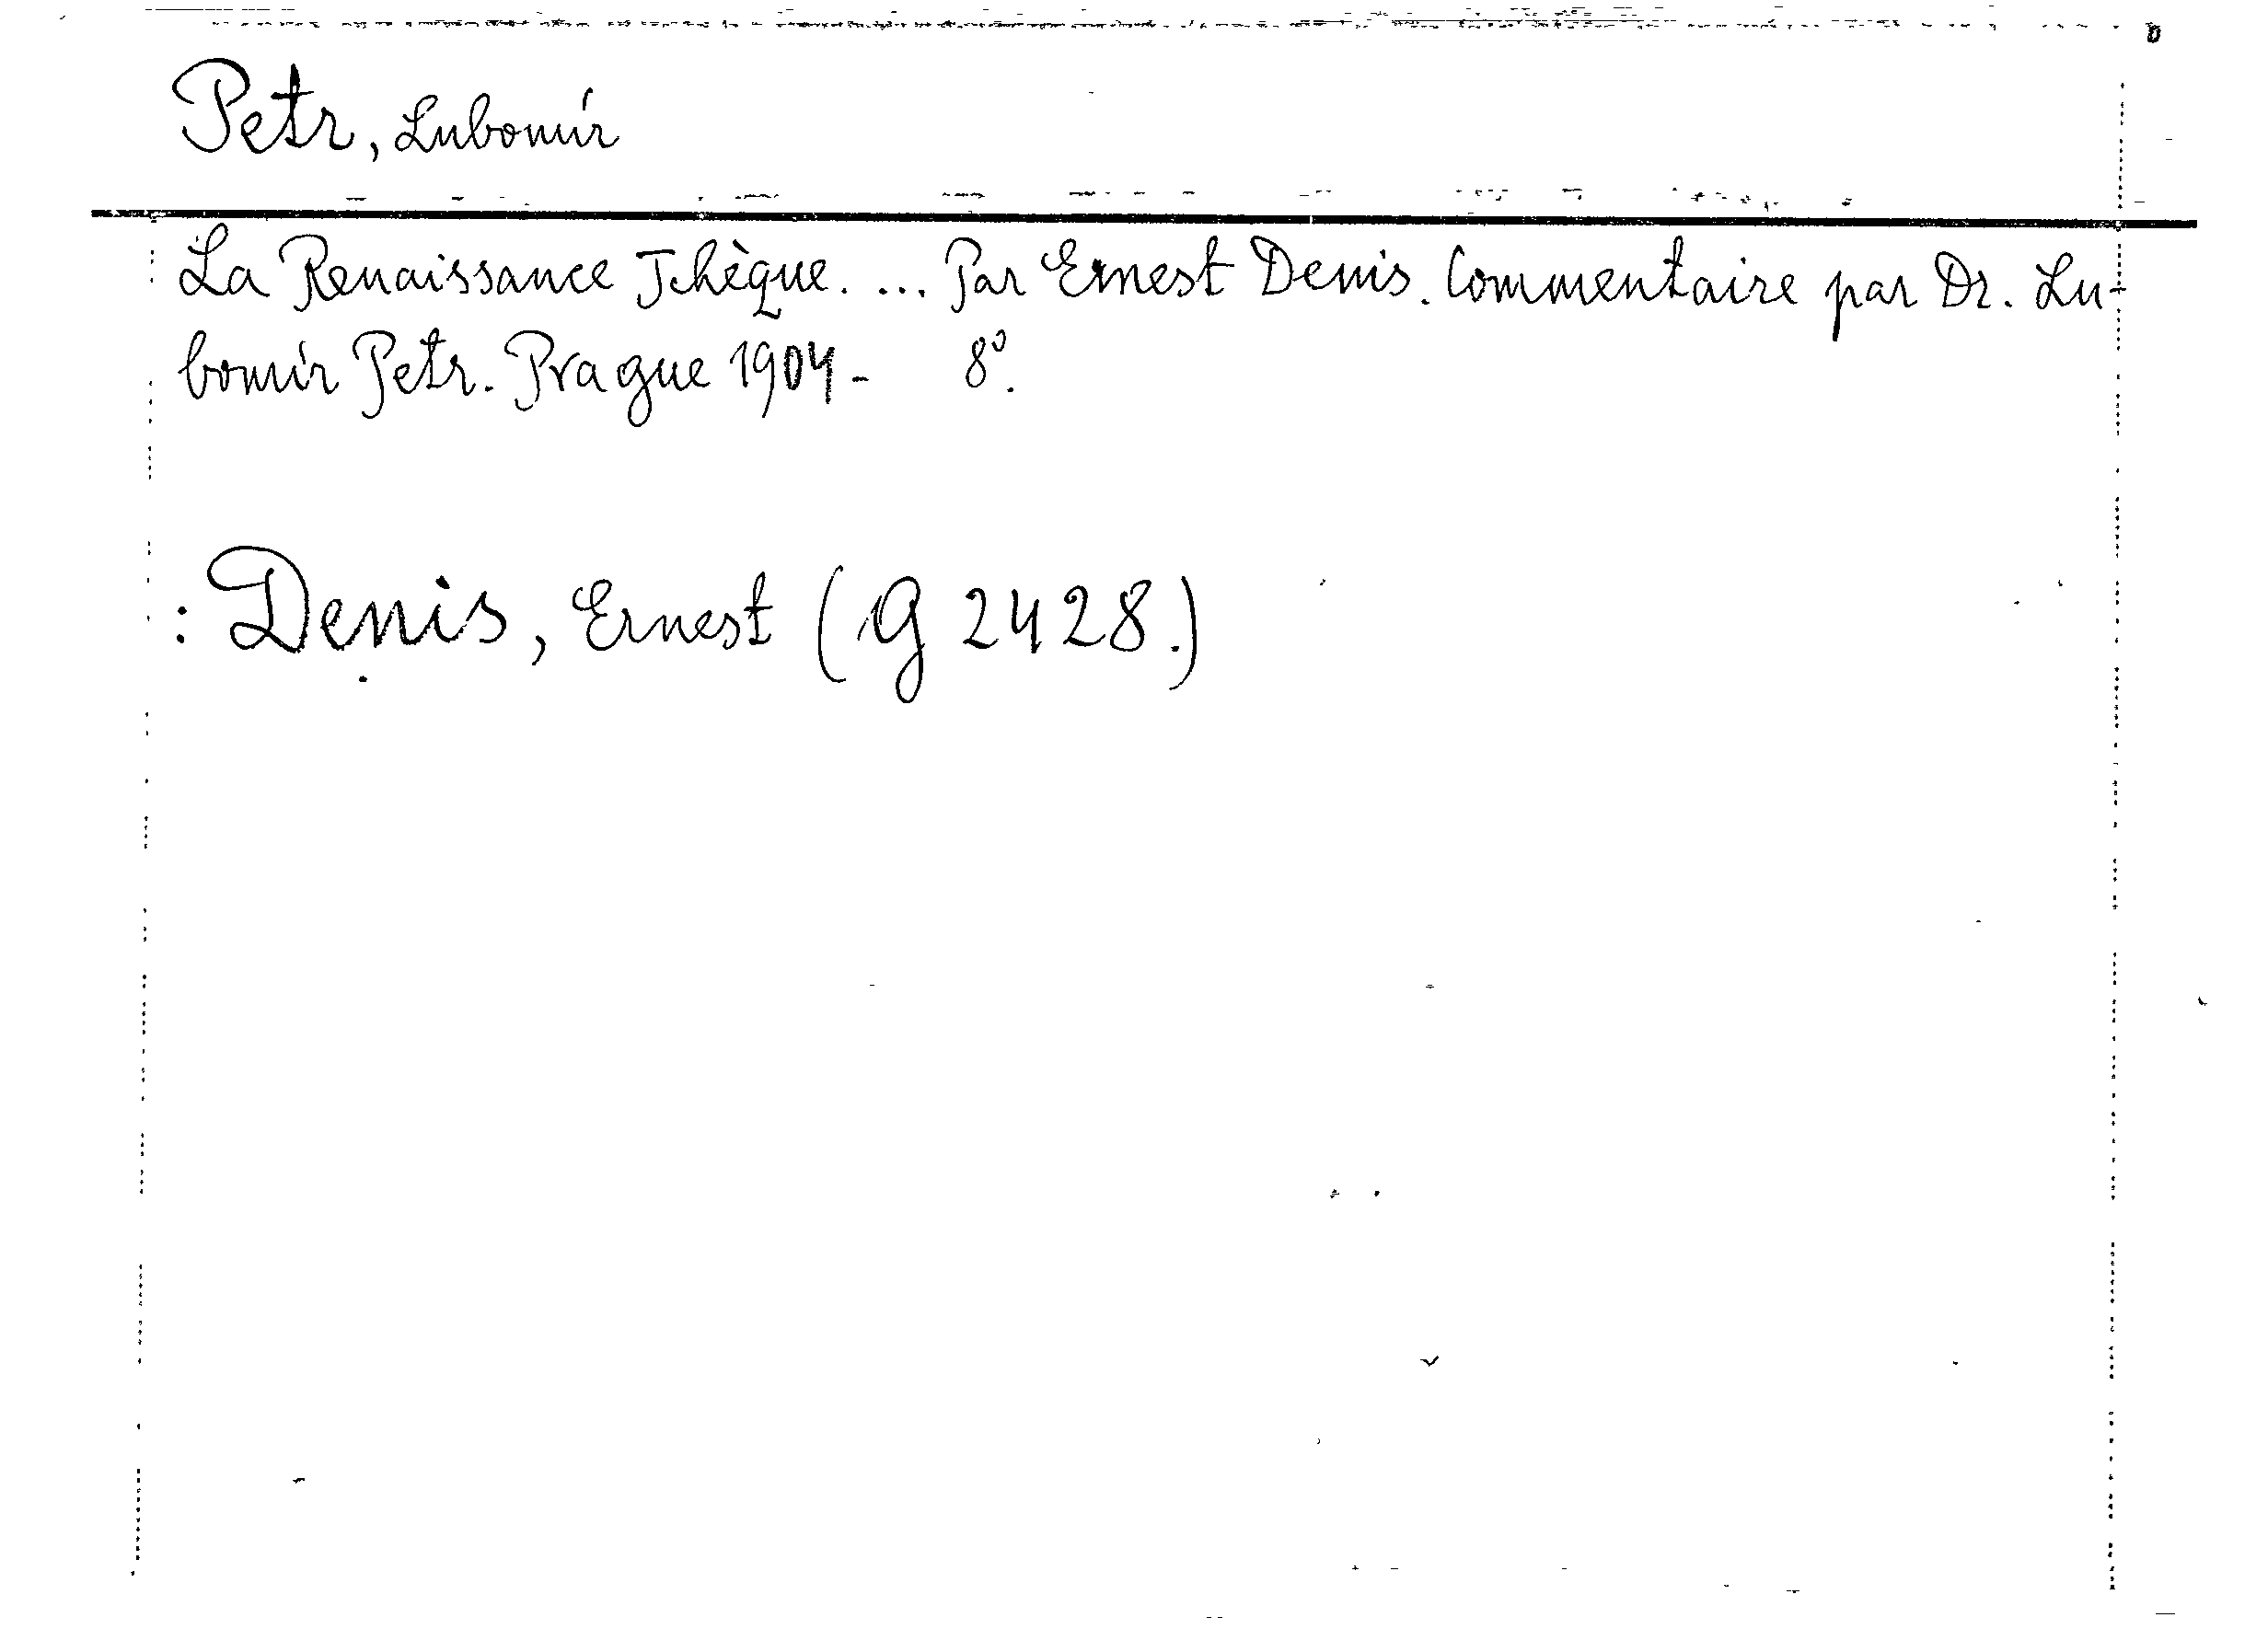 Petr, Lubomír
La Renaissance Tchèque. ... Par Ernest Denis. Commentaire par Dr. Lu-
bomír Petr. Prague 1904- 8º.
: Denis, Ernest (G 2428.)